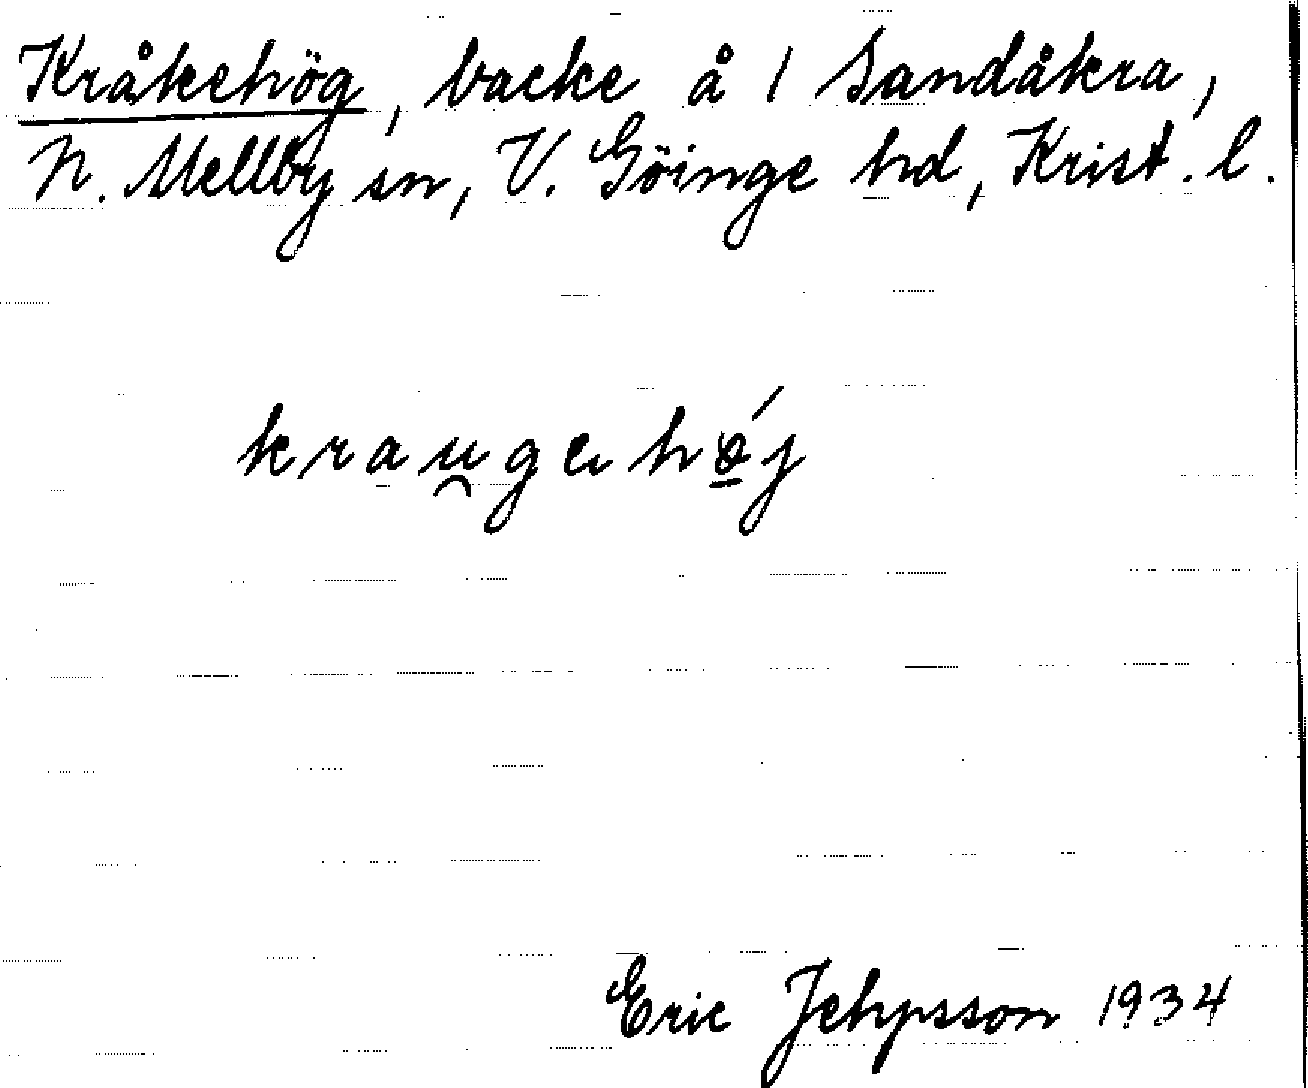 Kråkehög, backe å 1 Sandåkra,
N. Mellby sn, V. Göinge hd, Krist. l.
krau̯gəhǿ̱j
Eric Jehpsson 1934